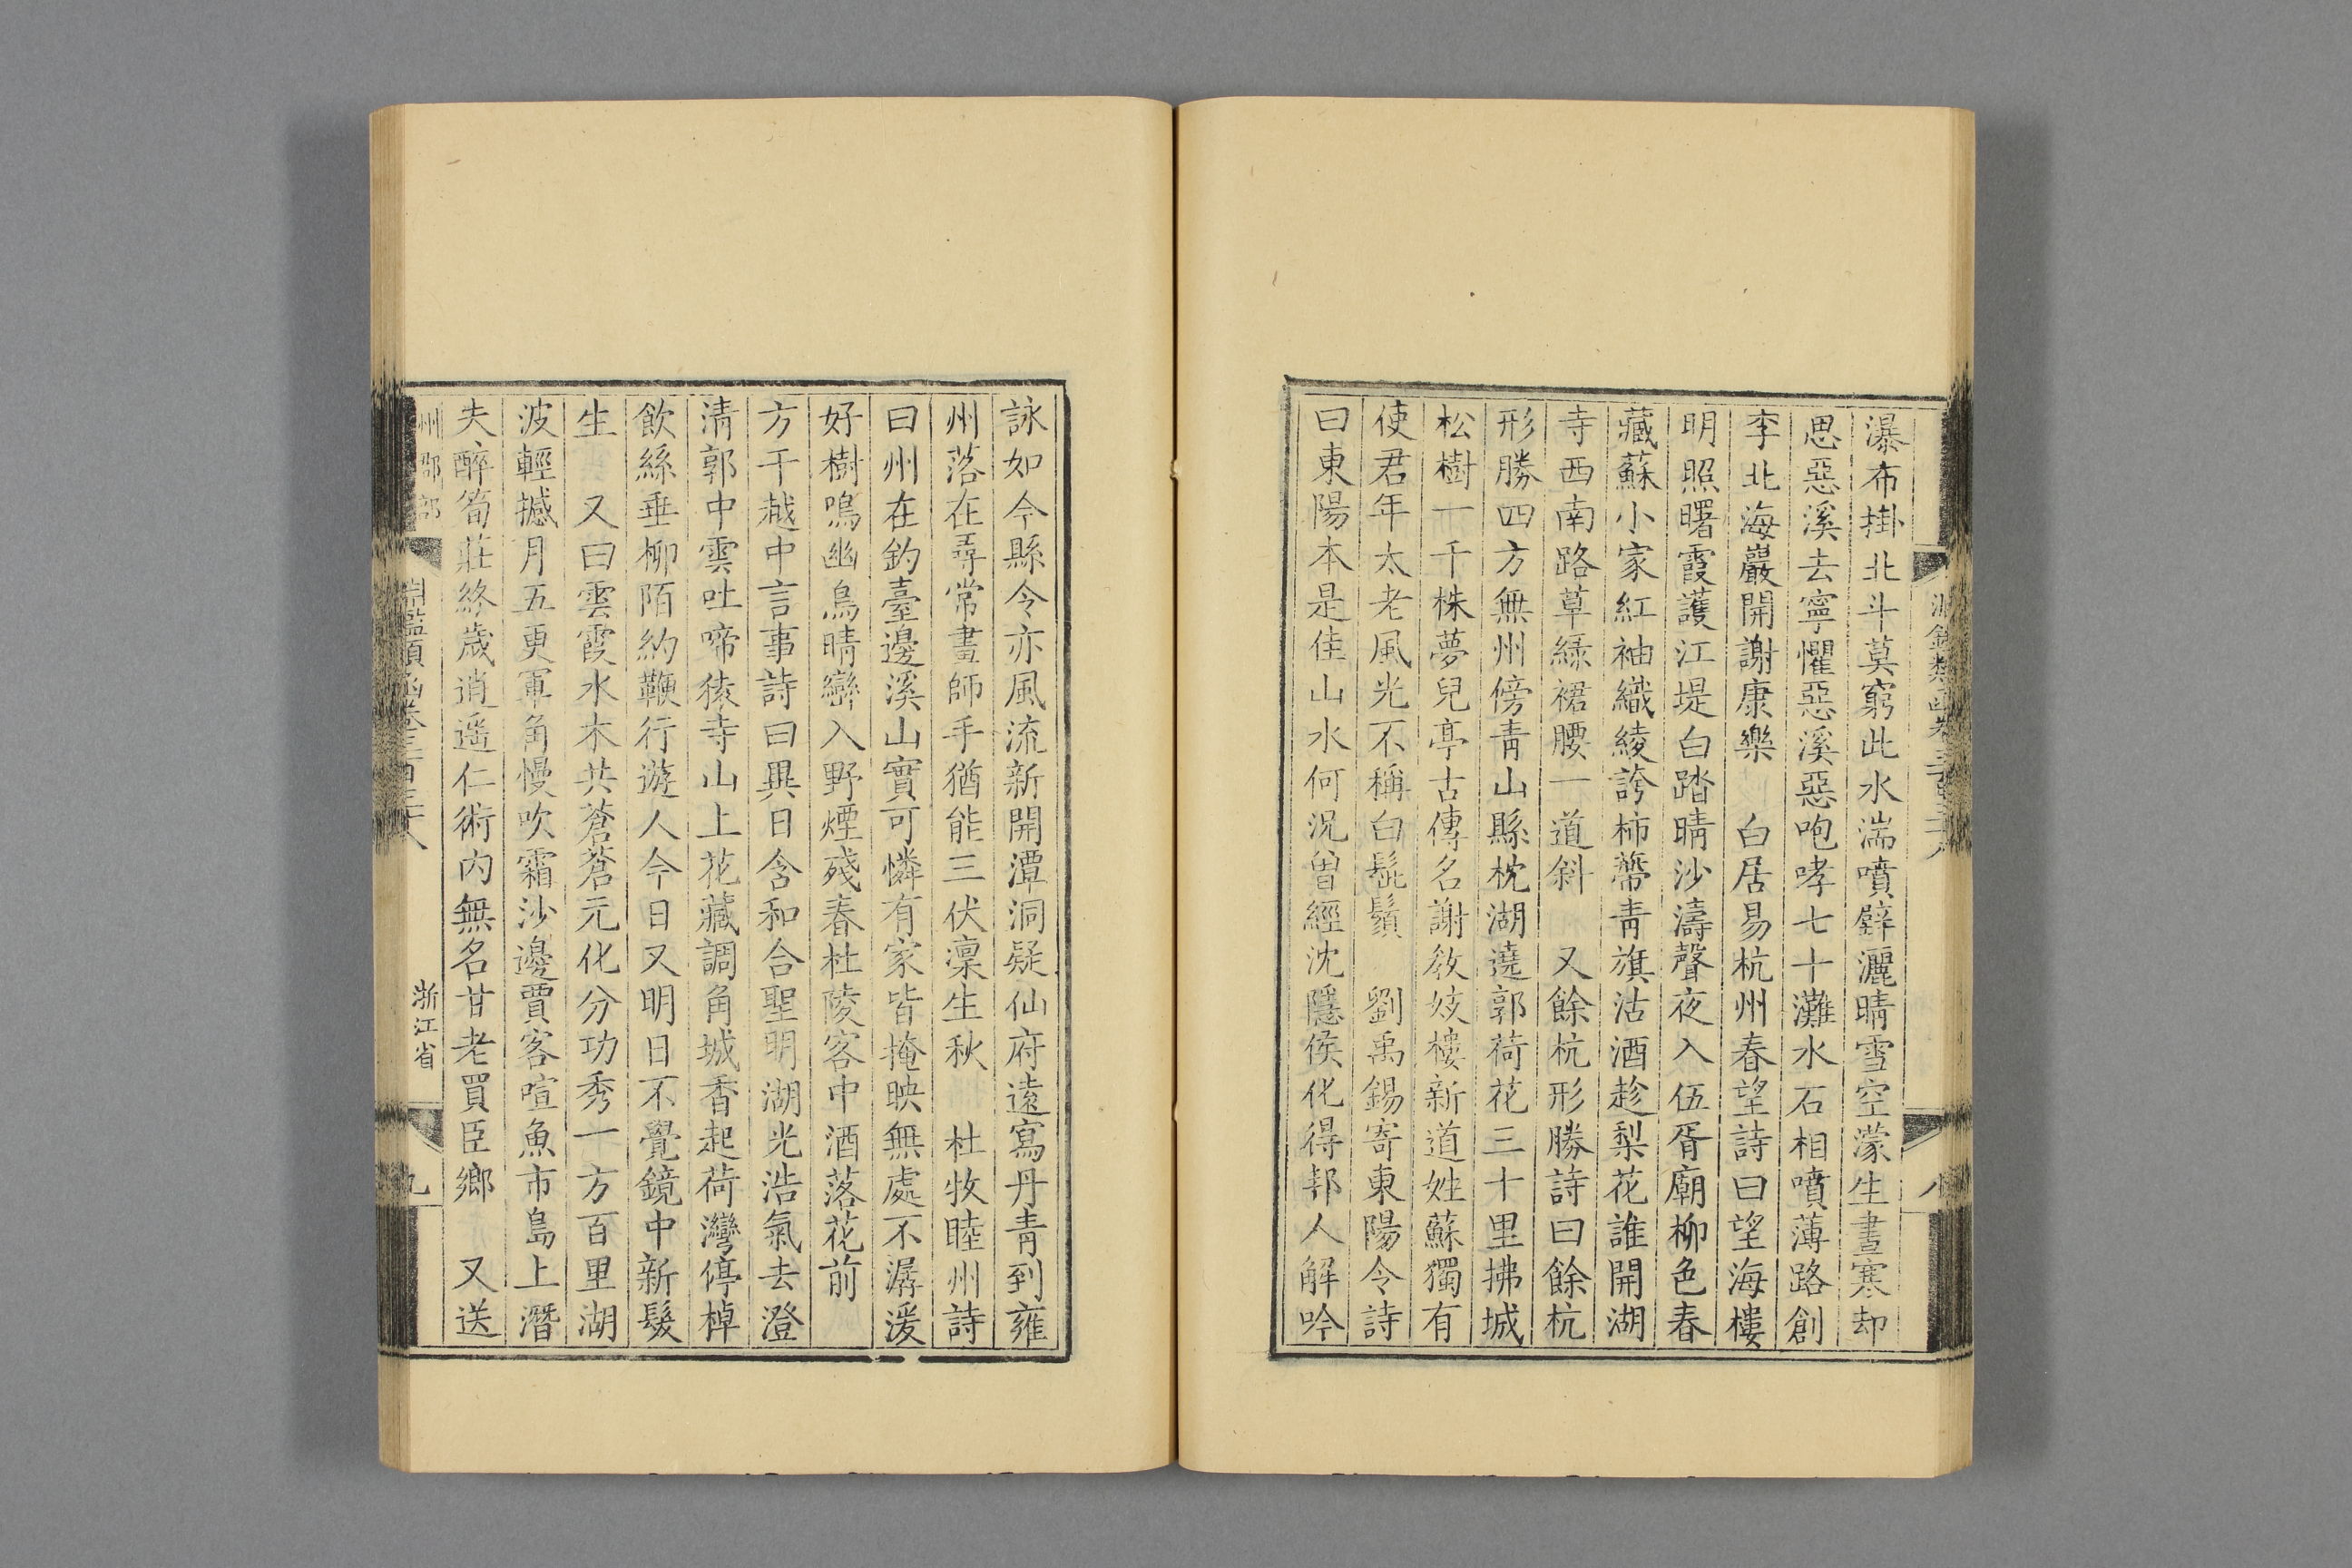 瀑布掛北斗莫窮此水湍噴壁灑晴雪空濛生晝寒却
思惡溪去寧懼惡溪惡咆哮七十灘水石相噴薄路創
李北海巖開謝康樂　白居易杭州春望詩曰望海樓
明照曙霞護江堤白踏晴沙濤聲夜入伍胥廟柳色春
藏蘇小家紅袖織綾誇柿蔕青旗沽酒趁梨花誰開湖
寺西南路草綠裙腰一道斜　又餘杭形勝詩曰餘杭
形勝四方無州傍青山縣枕湖遶郭荷花三十里拂城
松樹一千株夢兒亭古傳名謝敎妓樓新道姓蘇獨有
使君年太老風光不稱白髭鬚　劉禹錫寄東陽令詩
曰東陽本是佳山水何況曾經沈隱侯化得邦人解吟
詠如今縣令亦風流新開潭洞疑仙府遠寫丹青到雍
州落在尋常畫師手猶能三伏凜生秋　杜牧睦州詩
曰州在釣臺邊溪山實可憐有家皆掩映無處不潺湲
好樹鳴幽鳥晴巒入野煙殘春杜陵客中酒落花前
方干越中言事詩曰異日含和合聖明湖光浩氣去澄
清郭中雲吐啼猿寺山上花藏調角城香起荷灣停棹
飲絲垂柳陌約鞭行遊人今日又明日不覺鏡中新髮
生　又曰雲霞水木共蒼蒼元化分功秀一方百里湖
波輕撼月五更軍角慢吹霜沙邊賈客喧魚市島上潛
夫醉筍莊終歲逍遥仁術內無名甘老買臣鄉　又送
州郡部
淵鑑類函卷三百三十八
浙江省
九